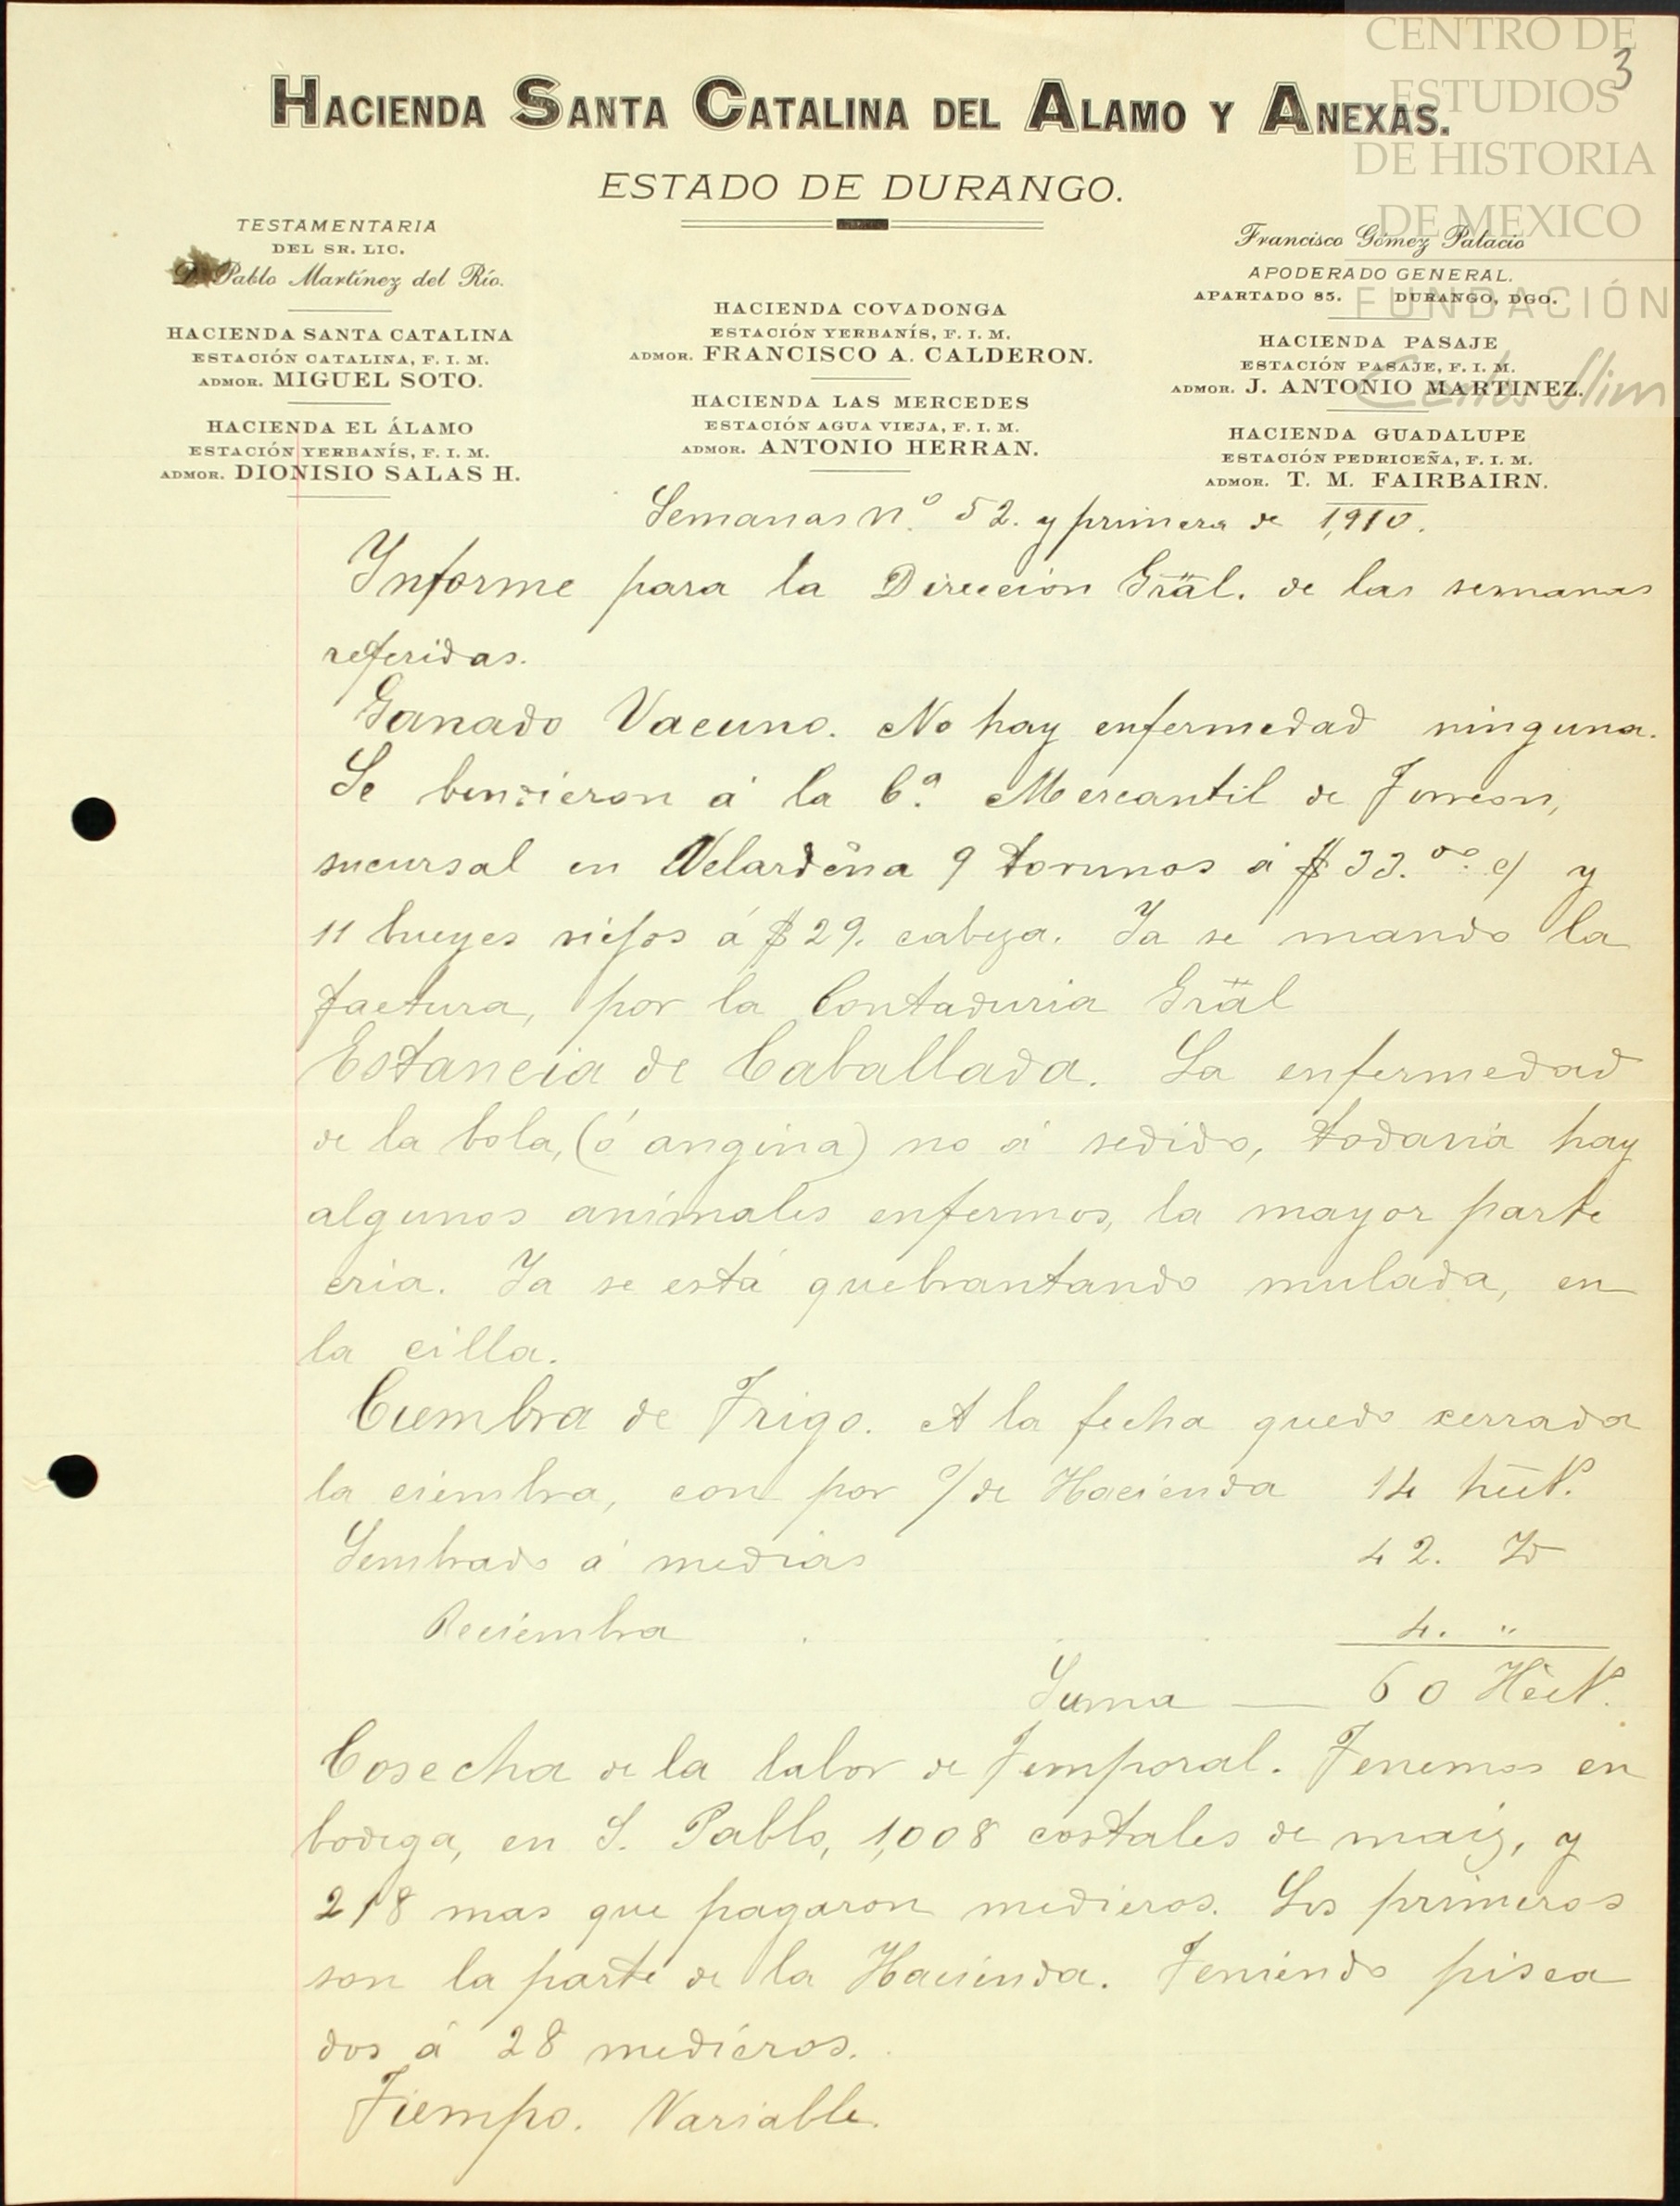 CENTRO DE
ESTUDIOS
DE HISTORIA
DE MEXICO
FUNDACIÓN
Carlos Slim
3
HACIENDA SANTA CATALINA DEL ALAMO Y ANEXAS.
ESTADO DE DURANGO.
TESTAMENTARIA
DEL SR. LIC.
D. Pablo Martínez del Río.
HACIENDA SANTA CATALINA
ESTACIÓN CATALINA, F. I. M.
ADMOR. MIGUEL SOTO.
HACIENDA EL ÁLAMO
ESTACIÓN YERBANÍS, F. I. M.
ADMOR. DIONISIO SALAS H.
HACIENDA COVADONGA
ESTACIÓN YERBANÍS, F. I. M.
ADMOR. FRANCISCO A. CALDERON.
HACIENDA LAS MERCEDES
ESTACIÓN AGUA VIEJA, F. I. M.
ADMOR. ANTONIO HERRAN.
Francisco Gómez Palacio
APODERADO GENERAL.
APARTADO 85. DURANGO, DGO.
HACIENDA PASAJE
ESTACIÓN PASAJE, F. I. M.
ADMOR. J. ANTONIO MARTINEZ.
HACIENDA GUADALUPE
ESTACIÓN PEDRICEÑA, F. I. M.
ADMOR. T. M. FAIRBAIRN.
Semanas nº 52. y primera de 1,910.
Informe para la Direccion Gräl. de las semanas
referidas.
Ganado Vacuno. No hay enfermedad ninguna.
Se bendieron á la Cª. Mercantil de Torreon,
sucursal en Velardeña 9 torunos á $33.00. c/ y
11 bueyes viejos á $29. cabeza. Ya se mando la
factura, por la Contaduria Gräl
Estancia de Caballada. La enfermedad
de la bola, (ó angina) no á sedido, todavia hay
algunos animales enfermos, la mayor parte
cria. Ya se está quebrantando mulada, en
la cilla.
Ciembra de Trigo. A la fecha quedo serrada
la ciembra, con por c/ de Hacienda 14 hect.
Sembrado á medias 42. Id
Reciembra 4. "
Suma — 60 Hect.
Cosecha de la labor de Temporal. Tenemos en
bodega, en S. Pablo, 1,008 costales de maiz, y
218 mas que pagaron medieros. Los primeros
son la parte de la Hacienda. Teniendo pisca
dos á 28 medieros.
Tiempo. Variable.